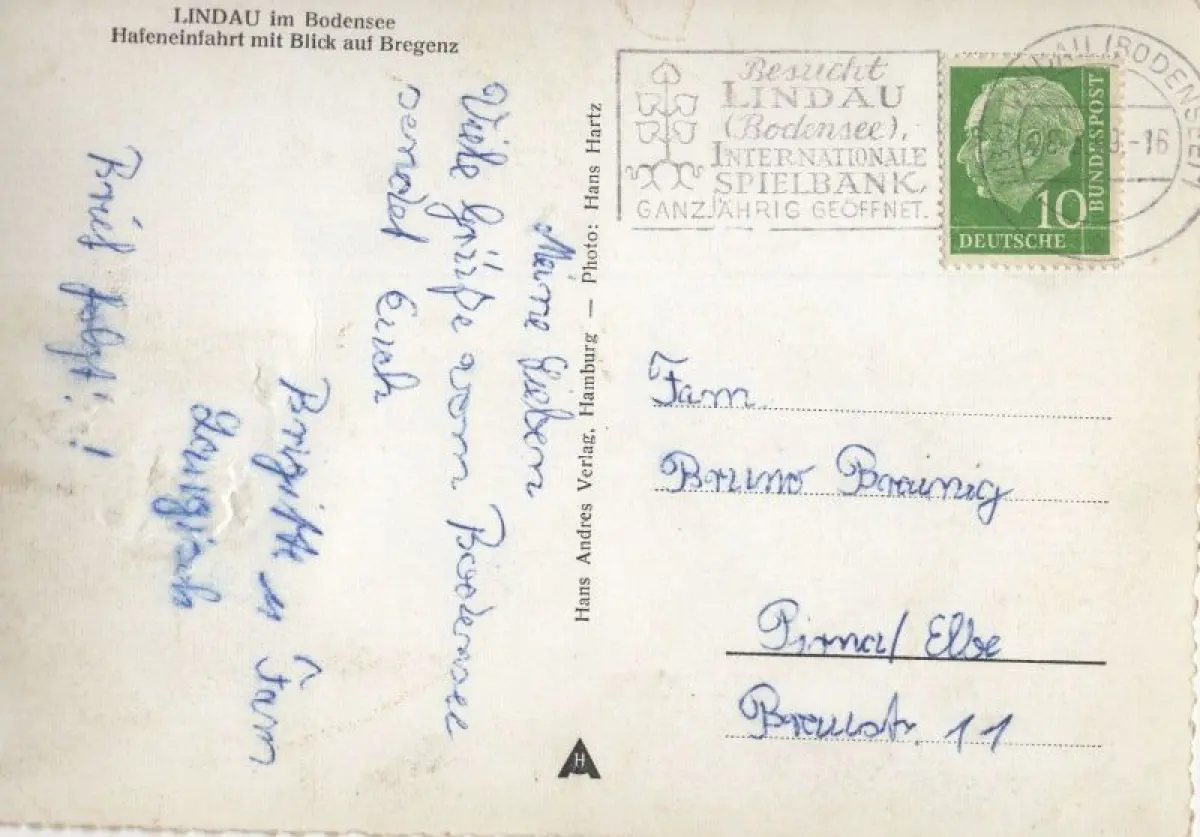 LINDAU im Bodensee
Hafeneinfahrt mit Blick auf Bregenz
Meine Lieben
Viele Grüße vom Bodensee
sendet Euch
Brigitte u Fam
Brief folgt!!
Hans Andres Verlag, Hamburg — Photo: Hans Hartz
H
Besucht
LINDAU
(Bodensee),
INTERNATIONALE
SPIELBANK,
GANZJÄHRIG GEÖFFNET.
(BODENSEE)
-16
10
DEUTSCHE
BUNDESPOST
Fam.
Bruno Braunig
Pirna/ Elbe
11